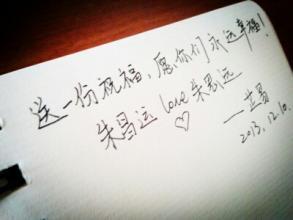 送一份祝福，愿你们永远幸福！
朱昌运 love 朱恩远
♡
2013.12.10.